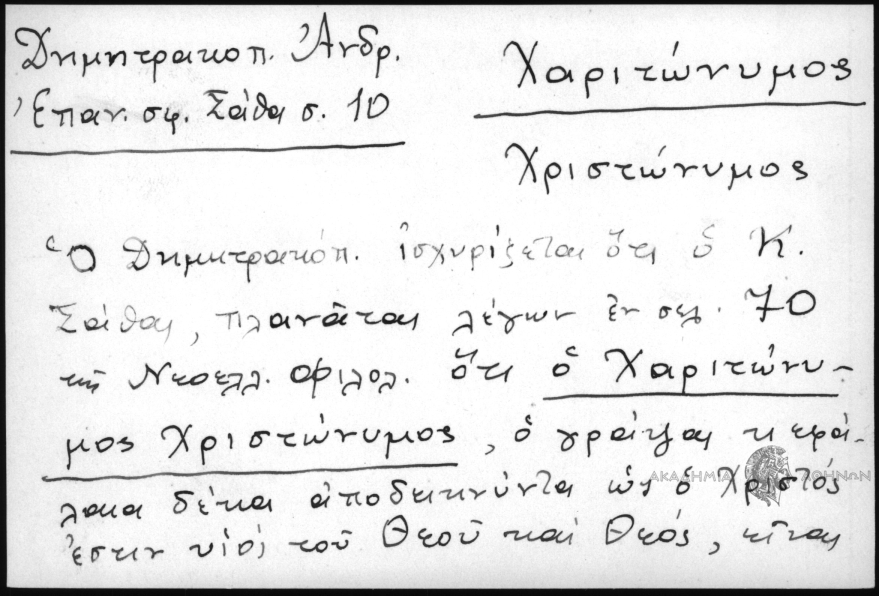 Δημητρακοπ. Ἀνδρ.
Ἐπαν. σφ. Σάθα σ. 10
Χαριτώνυμος
Χριστώνυμος
Ὁ Δημητρακόπ. ἰσχυρίζεται ὅτι ὁ Κ.
Σάθας, πλανᾶται λέγων ἐν σελ. 70
τῆς Νεοελλ. Φιλολ. ὅτι ὁ Χαριτώνυ-
μος Χριστώνυμος, ὁ γράψας κεφά-
λαια δέκα ἀποδεικνύντα ὡς ὁ Χριστός
ἐστιν υἱὸς τοῦ Θεοῦ καὶ Θεός, εἶναι
ΑΚΑΔΗΜΙΑ ΑΘΗΝΩΝ